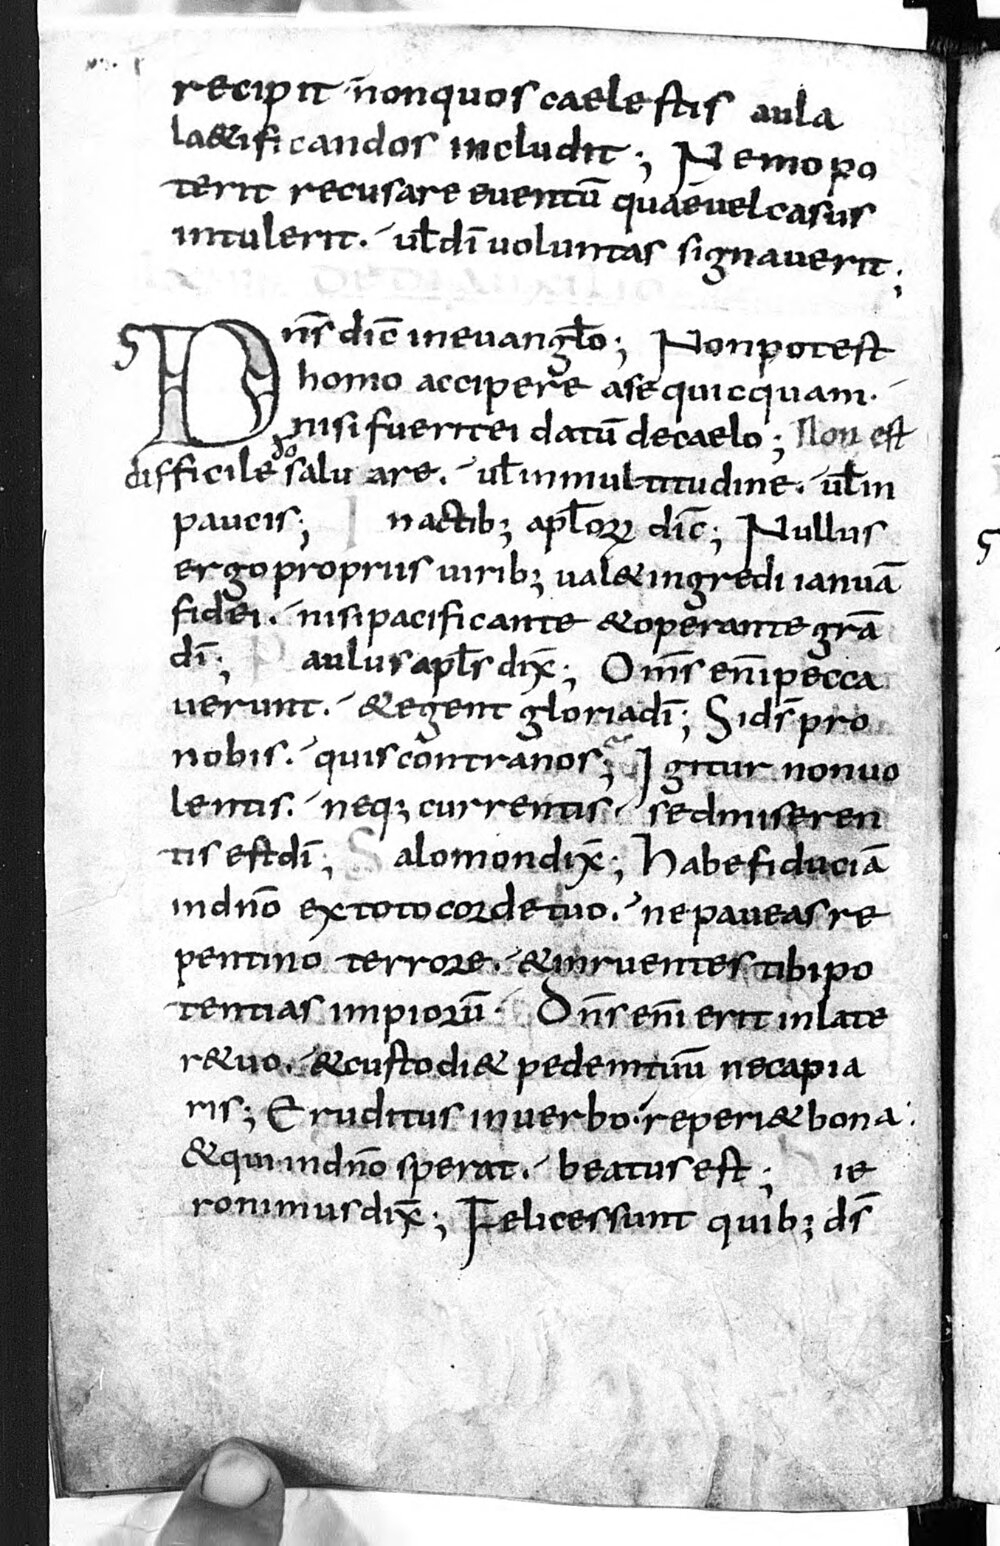 recipit· non quos caelestis aula
laetificandos includit; Nemo po
terit recusare eventū quaē vel casus
intulerit· ul̄ dī voluntas signaverit;
Dn̄s dic̄ in evangl̄o; Non potest
homo accipere a se quicquam·
nisi fuerit ei datū de caelo; Non est
difficile dō salvare· ul̄ in multitudine· ul̄ in
paucis; In actib; apl̄oꝝ dic̄; Nullus
ergo propriis virib; valet ingredi ianuā
fidei· nisi pacificante & operante grā
dī; Paulus apl̄s dix̄; Om̄s en̄i pecca
verunt· & egent gloria dī; Si ds̄ pro
nobis· quis contra nos; Igitur non vo
lentis· neq; currentis· sed miseren
tis est dī; Salomon dix̄; Habe fiduciā
in dn̄o ex toto corde tuo· ne paveas re
pentino terrore· & inruentes tibi po
tentias impiorū· Dn̄s en̄i erit in late
re tuo· & custodi& pedem tuū ne capia
ris; Eruditus in verbo· reperi& bona·
& qui in dn̄o sperat· beatus est; ie
ronimus dix̄; Felices sunt quib; ds̄